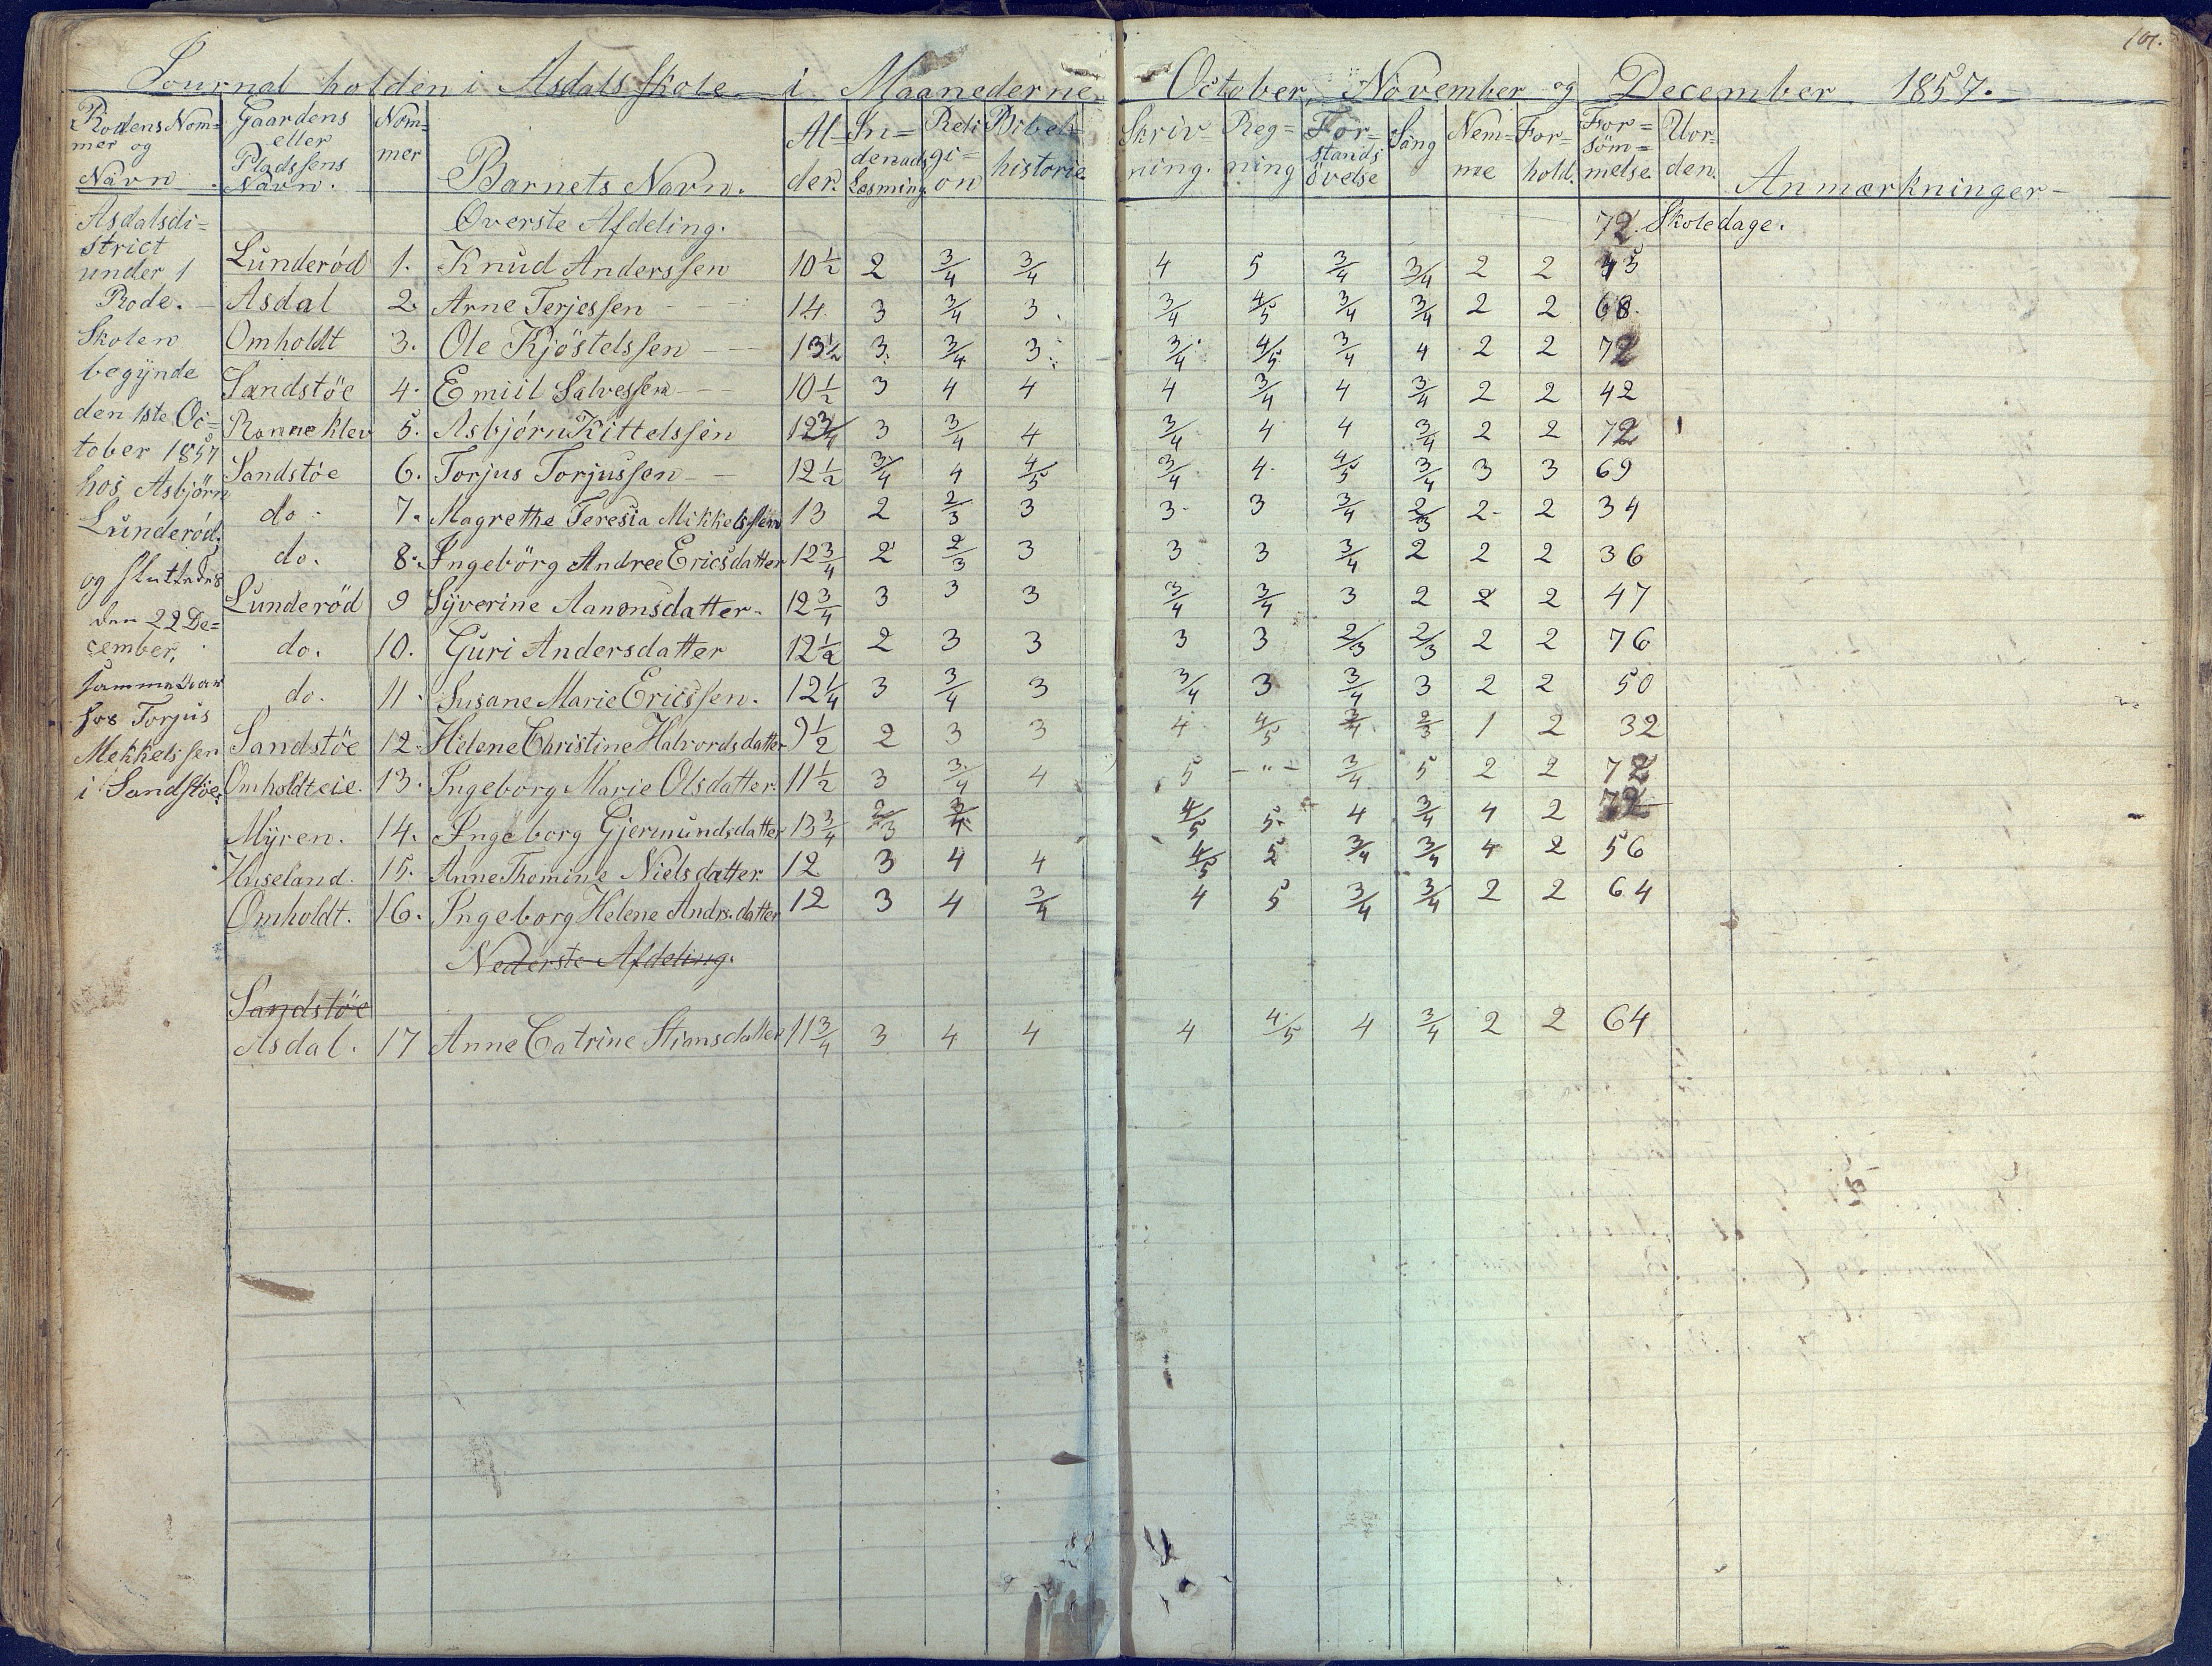 101.
Journal holden i Asdals Skole i Maanederne October, November og December 1857.
Rodens Nom=
mer og
Navn.
Gaardens
eller
Pladssens
Navn.
Nom=
mer
Barnets Navn.
Al=
der.
In=
denads
Læsning.
Reli
gi=
on
Bibel=
historie.
Skriv
ning.
Reg=
ning
For=
stands
övelse
Sang
Nem=
me
For=
hold.
For=
söm=
melse.
Uor=
den.
Anmærkninger
Asdalsdi=
strict
under 1
Rode.
Skolen
begynde
den 1ste Oc=
tober 1857
hos Asbjörn
Lunderöd,
og sluttedes
den 22 De=
cember,
samme var
hos Torjus
Mekkelssen
i Sandstöe.
Overste Afdeling. 72 Skoledage.
Lunderöd 1. Knud Anderssen 10½ 2 3/4 3/4 4 5 3/4 3/4 2 2 43
Asdal 2. Arne Terjessen 14. 3 3/4 3. 3/4 4/5 3/4 3/4 2 2 68.
Omholdt 3. Ole Kjöstelssen 13½ 3. 3/4 3. 3/4 4/5 3/4 4 2 2 72
Sandstöe 4. Emiil Salvessen 10½ 3 4 4 4 3/4 4 3/4 2 2 42
Ranneklev 5. Asbjörn Kittelssen 12¾ 3 3/4 4 3/4 4 4 3/4 2 2 72
Sandstöe 6. Torjus Torjussen 12½ 3/4 4 4/5 3/4 4. 4/5 3/4 3 3 69
do. 7. Magrethe Teresia Mikkelssen 13 2 2/3 3 3. 3 3/4 2/3 2 2 34
do. 8. Ingebörg Andree Ericsdatter 12¾ 2 2/3 3 3 3 3/4 2 2 2 36
Lunderöd 9 Syverine Aanonsdatter 12¾ 3 3 3 3/4 3/4 3 2 2 2 47
do. 10. Guri Andersdatter 12½ 2 3 3 3 3 2/3 2/3 2 2 76
do. 11. Susane Marie Ericssen. 12¼ 3 3/4 3 3/4 3 3/4 3 2 2 50
Sandstöe 12. Helene Christine Halvordsdatter 9½ 2 3 3 4 4/5 3/4 2/3 1 2 32
Omholdteie. 13. Ingeborg Marie Olsdatter. 11½ 3 3/4 4 5 -"- 3/4 5 2 2 72
Myren. 14. Ingeborg Gjermundsdatter 13¾ 2/3 3/4 4/5 5. 4 3/4 4 2 72
Huseland. 15. Anne Thomine Nielsdatter 12 3 4 4 4/5 5 3/4 3/4 4 2 56
Omholdt. 16. Ingeborg Helene Andrs.datter 12 3 4 3/4 4 5 3/4 3/4 2 2 64
Nederste Afdeling.
Sandstöe
Asdal. 17 Anne Catrine Stiansdatter 11¾ 3 4 4 4 4/5 4 3/4 2 2 64